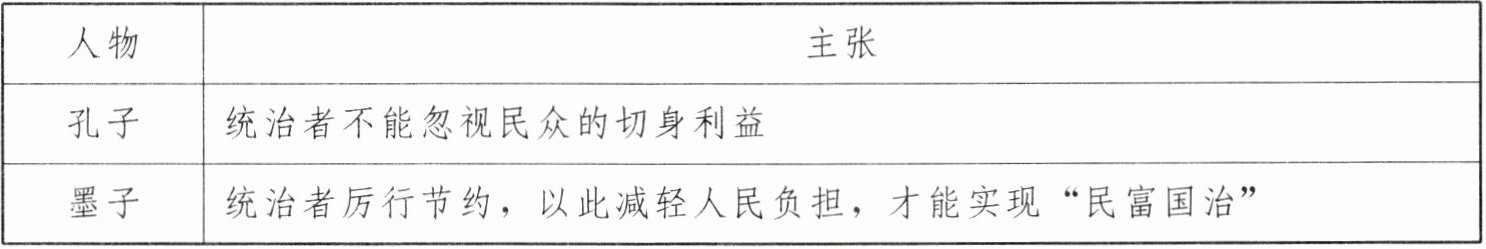 人物 主张
孔子 统治者不能忽视民众的切身利益
墨子 统治者厉行节约，以此减轻人民负担，才能实现“民富国治”